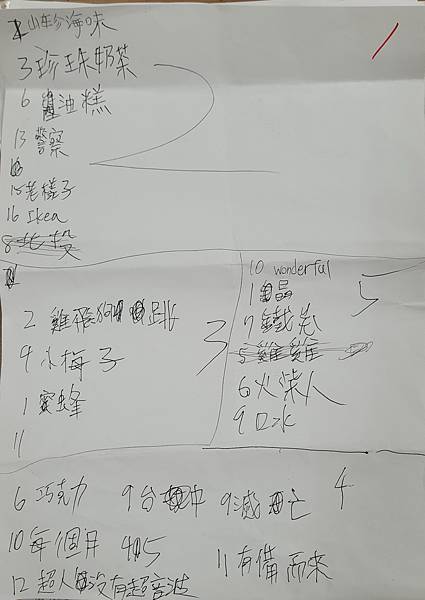 山珍海味
3 珍珠奶茶
2
6 醬油糕
13 警察
15 老樣子
16 Ikea
8 北投
2 雞飛狗跳
9 小梅子
1 蜜蜂
11
3
10 wonderful
1 晶
7 鐵卷
5 雞雞
6 火柴人
9 口水
5
6 巧克力 9 台中 9 滅亡 4
10 每個月 405 11 有備而來
12 超人沒有超音波